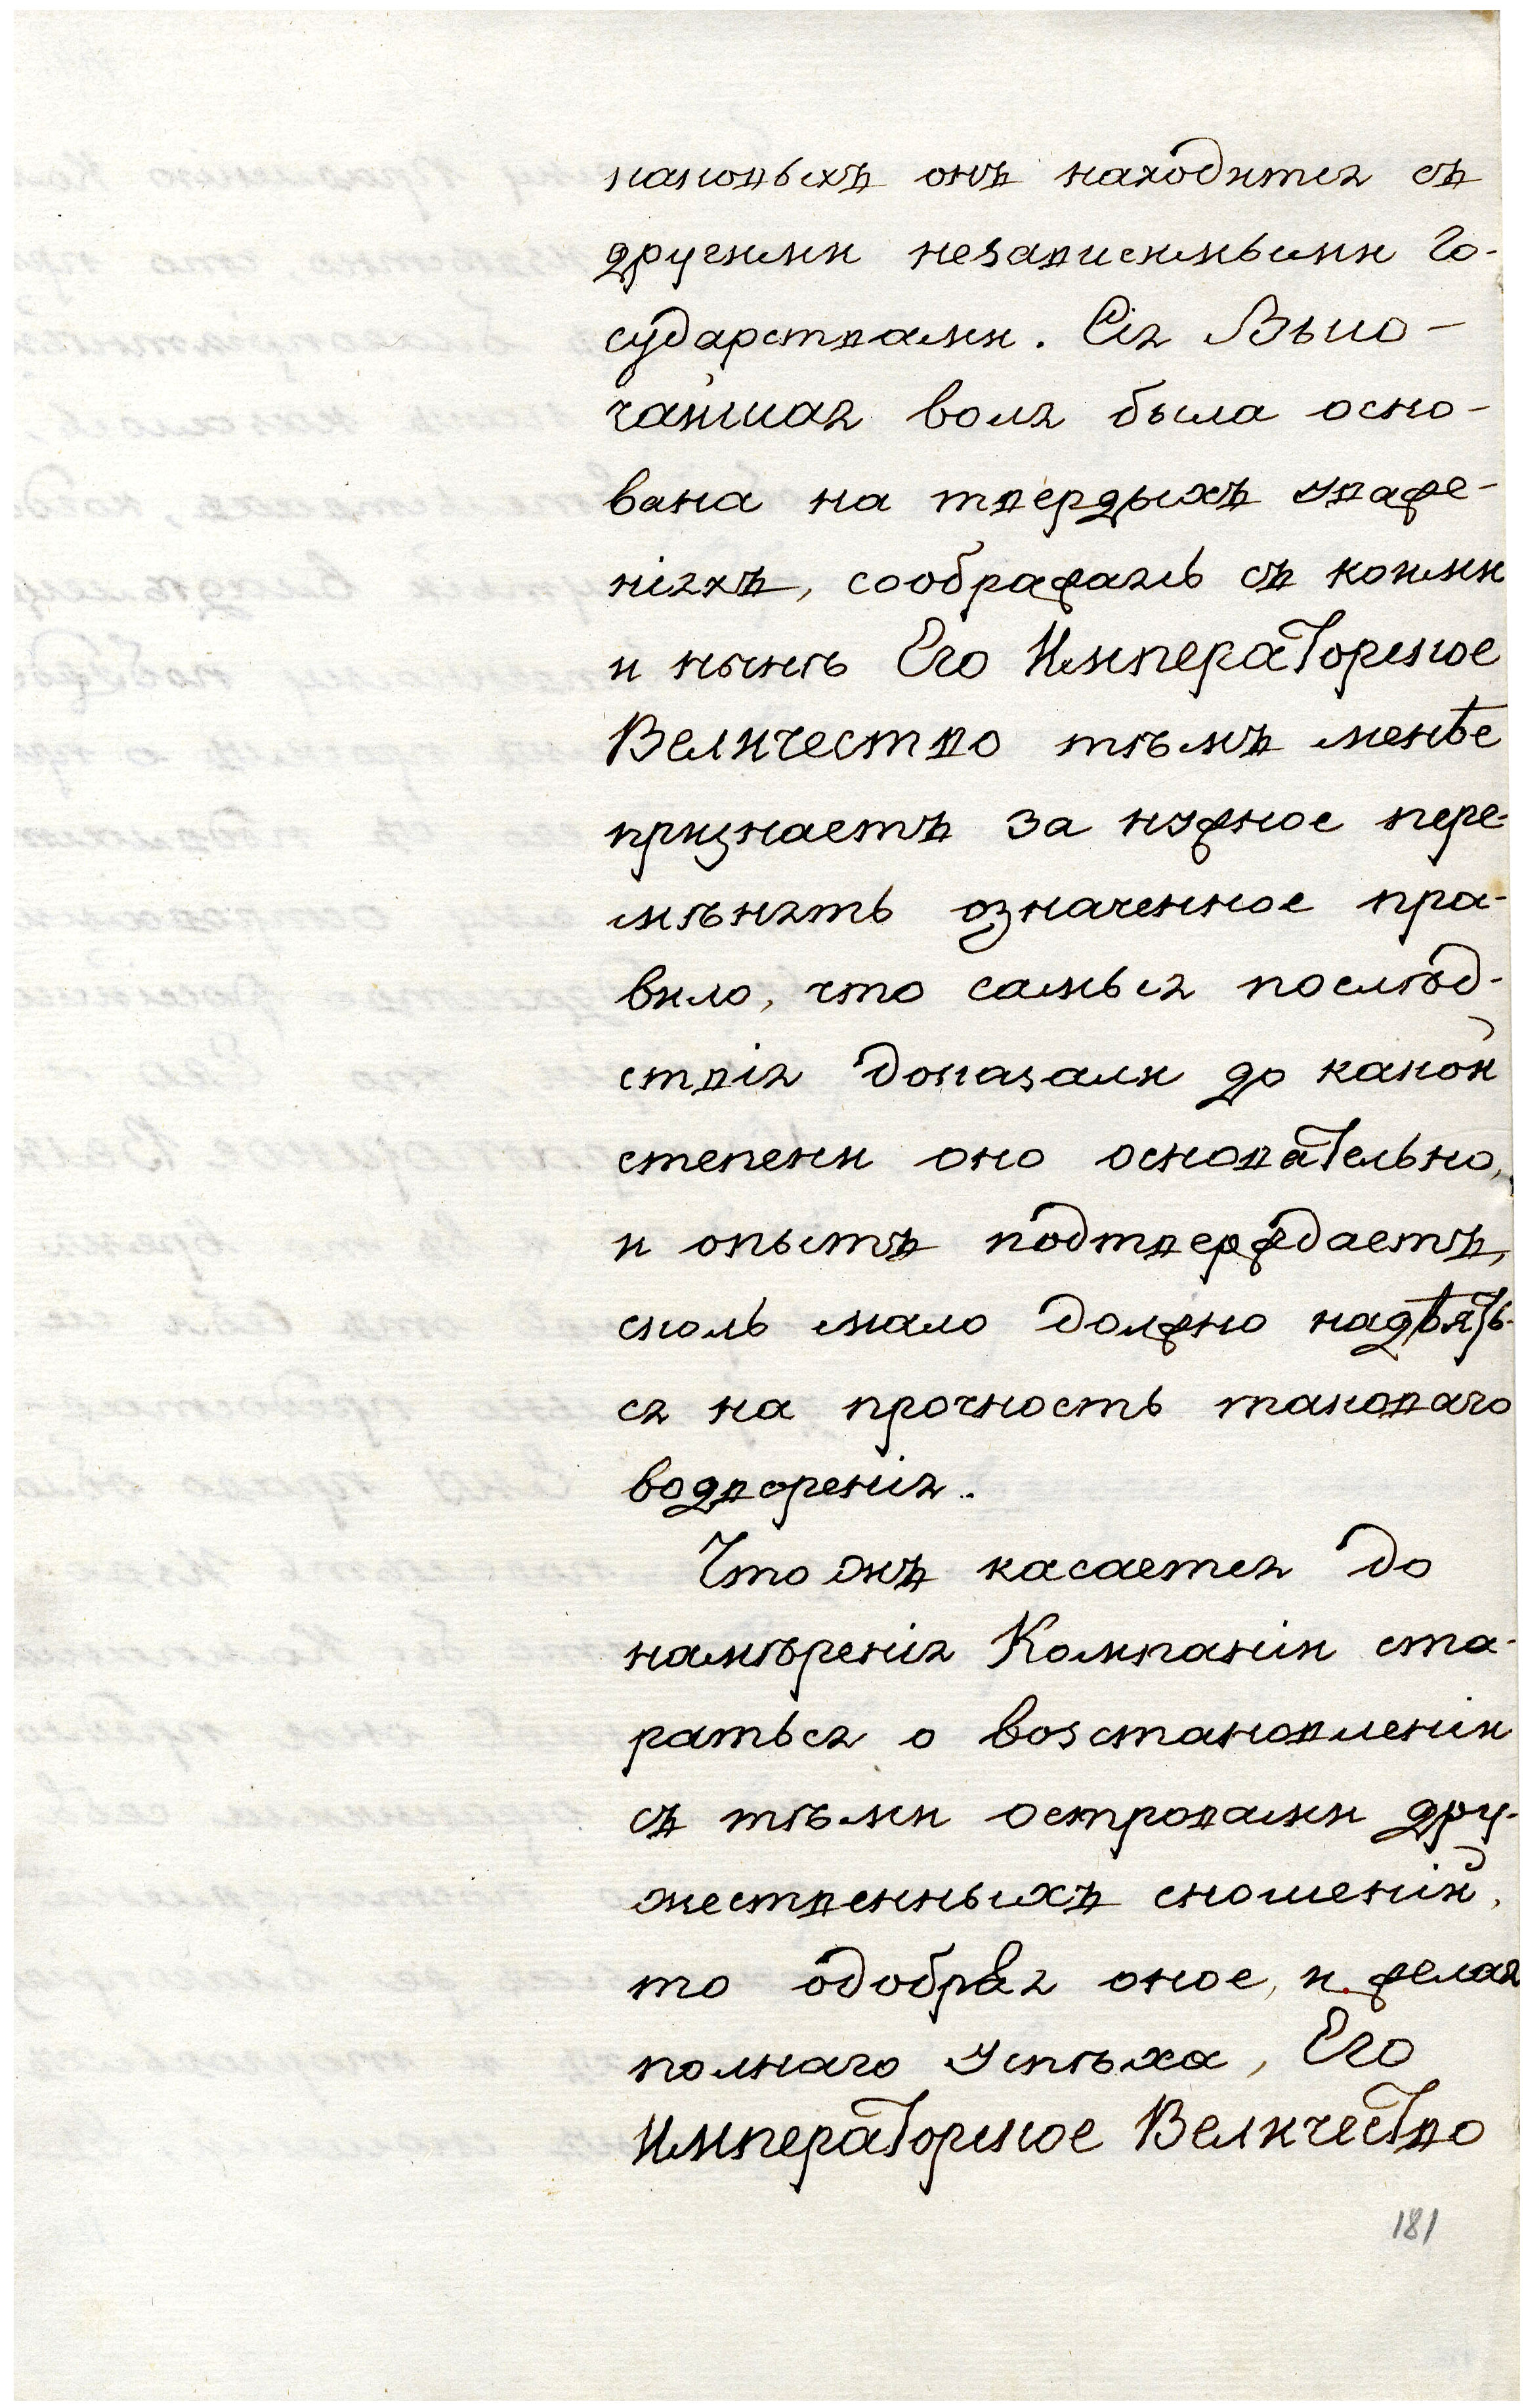 каковыхъ онъ находится съ
другими независимыми Го-
сударствами. Сія Высо-
чайшая воля была осно-
вана на твердыхъ уваже-
ніяхъ, соображаясь съ коими
и нынѣ Его Императорское
Величество тѣмъ менѣе
признаетъ за нужное пере-
мѣнять означенное пра-
вило, что самыя послѣд-
ствія доказали до какой
степени оно основательно,
и опытъ подтверждаетъ,
сколь мало должно надѣять-
ся на прочность таковаго
водворенія.
Что жъ касается до
намѣренія Компаніи ста-
раться о возстановленіи
съ тѣми островами дру-
жественныхъ сношеній,
то одобряя оное, и желая
полнаго успѣха, Его
Императорское Величество
181